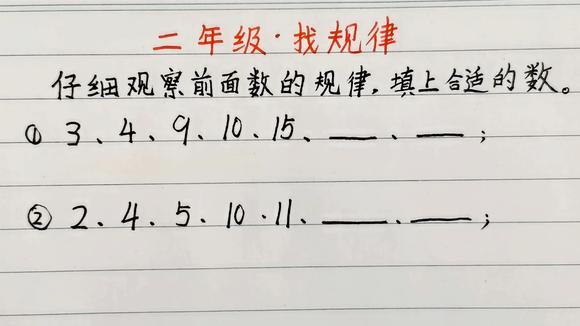 二年级·找规律
仔细观察前面数的规律，填上合适的数。
① 3、4、9、10、15、___、___；
② 2、4、5、10·11、___、___；